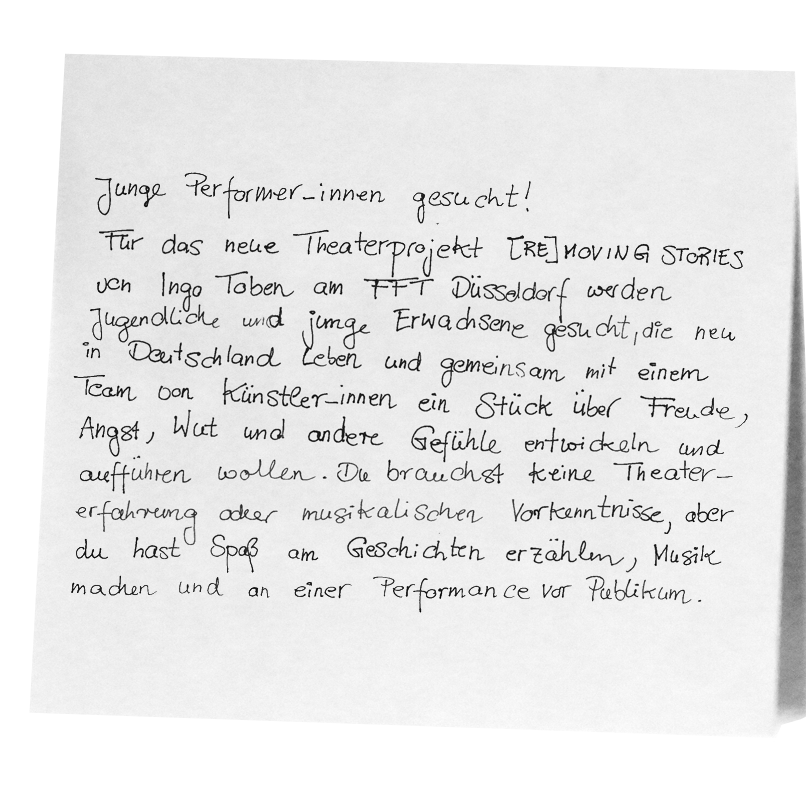 Junge Performer_innen gesucht!
Für das neue Theaterprojekt [RE]MOVING STORIES
von Ingo Toben am FFT Düsseldorf werden
Jugendliche und junge Erwachsene gesucht, die neu
in Deutschland leben und gemeinsam mit einem
Team von Künstler_innen ein Stück über Freude,
Angst, Wut und andere Gefühle entwickeln und
aufführen wollen. Du brauchst keine Theater-
erfahrung oder musikalischen Vorkenntnisse, aber
du hast Spaß am Geschichten erzählen, Musik
machen und an einer Performance vor Publikum.